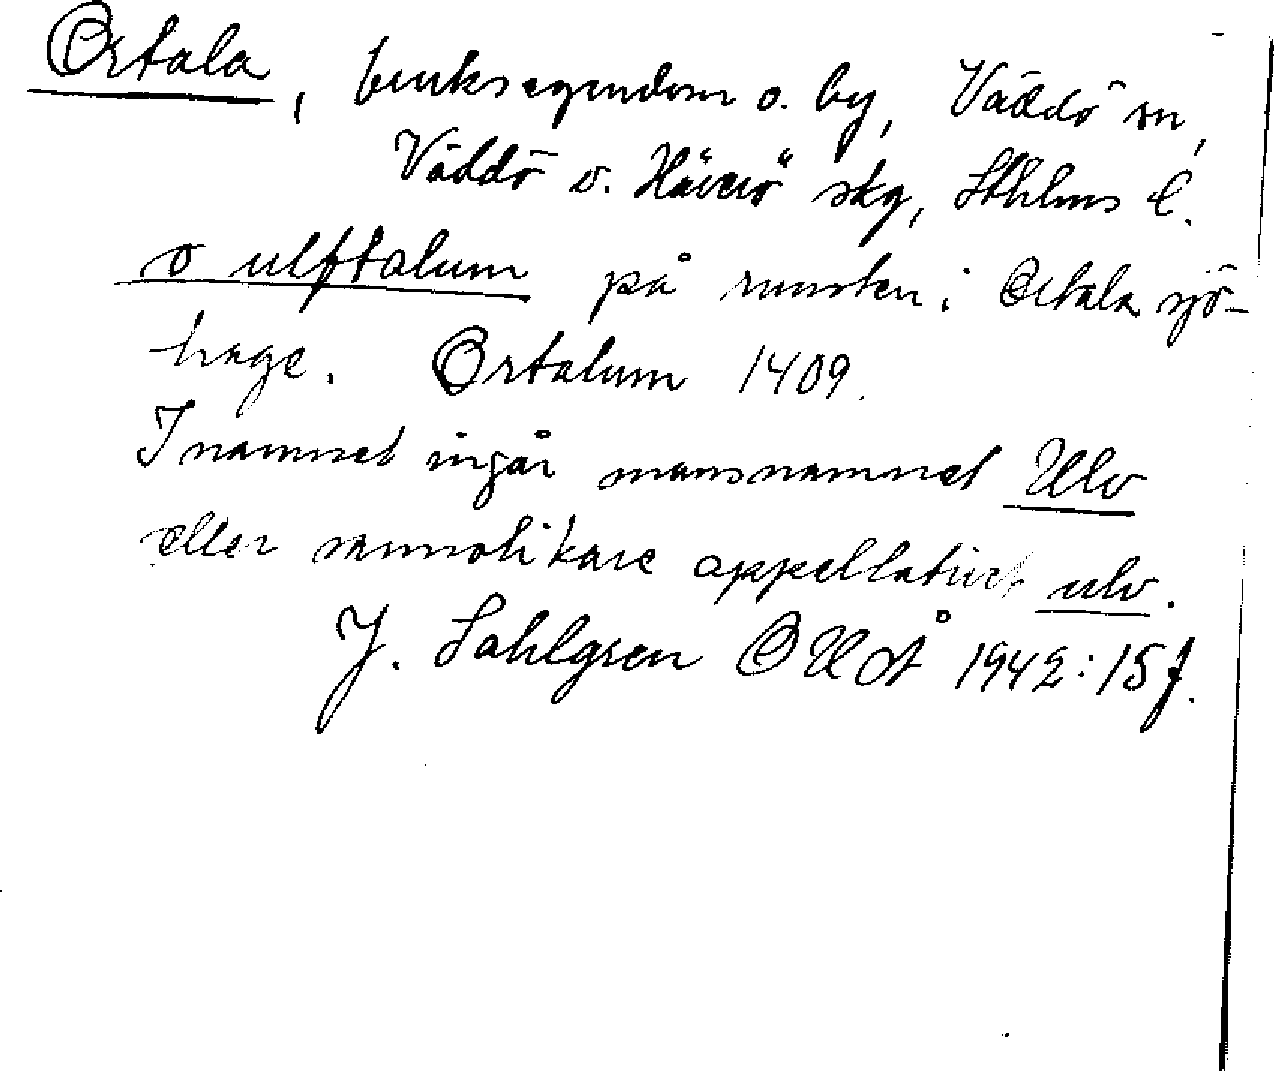 Ortala, bruksegendom o. by, Väddö sn,
Väddö o. Häverö skg, Sthlms l.
o ulftalum på runsten i Ortala sjö-
hage. Ortalum 1409.
I namnet ingår mansnamnet Ulv
eller sannolikare appellativet ulv.
J. Sahlgren OUÅ 1942:15f.